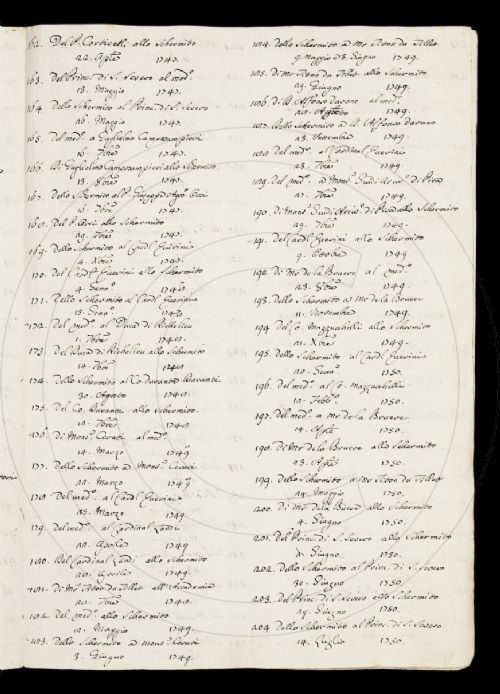 162. Del P. Corticelli allo Schermito
22. Aple 1747.
163. Del Princ. di S. Severo al med.o
13. Maggio 1747.
164. Dello Schermito al Princ. di S. Severo
16. Maggio 1747.
165. Del med.o a Guglielmo
16. 1747.
166. Di Guglielmo allo Schermito
13. 1747.
167. Dello Schermito al P. Giuseppe Orsi
16. 1747.
168. Del P. Orsi allo Schermito
29. 1747.
169. Dello Schermito al Card.l Querini
4. Xbre 1747.
170. Del Card.l Querini allo Schermito
4. Genn.o 1748
171. Dello Schermito al Card.l Querini
13. Genn.o 1748
172. Del med.o al Duca di Richelieu
1. 1748.
173. Del Duca di Richelieu allo Schermito
14. 1748
174. Dello Schermito al Co. Durante Duranti
30. Agosto 1748.
175. Del Co. Duranti allo Schermito
1748
176. Di Mons.r Cerati al med.o
14. Marzo 1749
177. Dello Schermito a Mons.r Cerati
22. Marzo 1749
178. Del med.o al Card.l Querini
25. Marzo 1749.
179. Del med.o al Cardinal Landi
12. Aprile 1749
180. Del Cardinal Landi allo Schermito
20. Aprile 1749.
181. Di Mr Titon du Tillet all'Accademia
1748.
182. Del med.o allo Schermito
12. Maggio 1749.
183. Dello Schermito a Mons.r Cerati
3. Giugno 1749.
184. Dello Schermito a Mr Titon du Tillet
9. Maggio e 3. Giugno 1749.
185. Di Mr Titon du Tillet allo Schermito
29. Giugno 1749.
186. Di D. Alfonso Varano al med.o
20. Agosto 1749.
187. Dello Schermito a D. Alfonso Varano
23. Settembre 1749.
188. Del med.o al Cardinal Querini
23. 1749.
189. Del med.o a Mons.r Guidi Arciv.o di Pisa
27. 1749.
190. Di Mons.r Guidi Arciv.o di Pisa allo Schermito
29. 1749.
191. Del Card.l Querini allo Schermito
9. Ottobre 1749.
192. Di Mr de la Bruere al med.o
23. 1749.
193. Dello Schermito a Mr de la Bruere
11. Novembre 1749.
194. Del Co. Mazzuchelli allo Schermito
21. Xbre 1749.
195. Dello Schermito al Card.l Querini
20. Genn.o 1750.
196. Del med.o al Co. Mazzuchelli
12. Febb.o 1750.
197. Del med.o a Mr de la Bruere
14. Aple 1750.
198. Di Mr de la Bruere allo Schermito
23. Aple 1750.
199. Dello Schermito a Mr Titon du Tillet
24. Maggio 1750.
200. Di Mr de la Bruere allo Schermito
4. Giugno 1750.
201. Del Princ. di S. Severo allo Schermito
2. Giugno 1750.
202. Dello Schermito al Princ. di S. Severo
30. Giugno 1750.
203. Del Princ. di S. Severo allo Schermito
29. Giugno 1750.
204 Dello Schermito al Princ. di S. Severo
14. Luglio 1750.